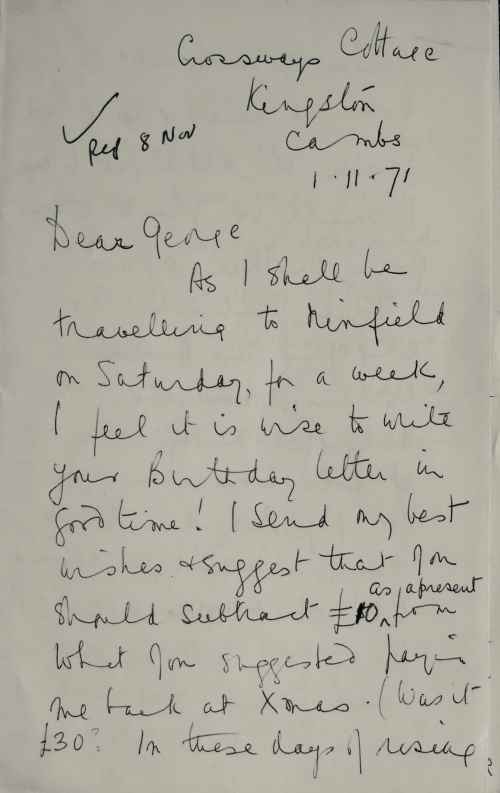 Crossways Cottage
Kingston
Cambs
1.11.71
✓ Rep 8 Nov
Dear George
As I shall be
travelling to Ninfield
on Saturday, for a week,
I feel it is wise to write
your Birthday letter in
good time! I send my best
wishes & suggest that you
should subtract £10 as a present from
what you suggested paying
me back at Xmas. (Was it
£30? In these days of rising